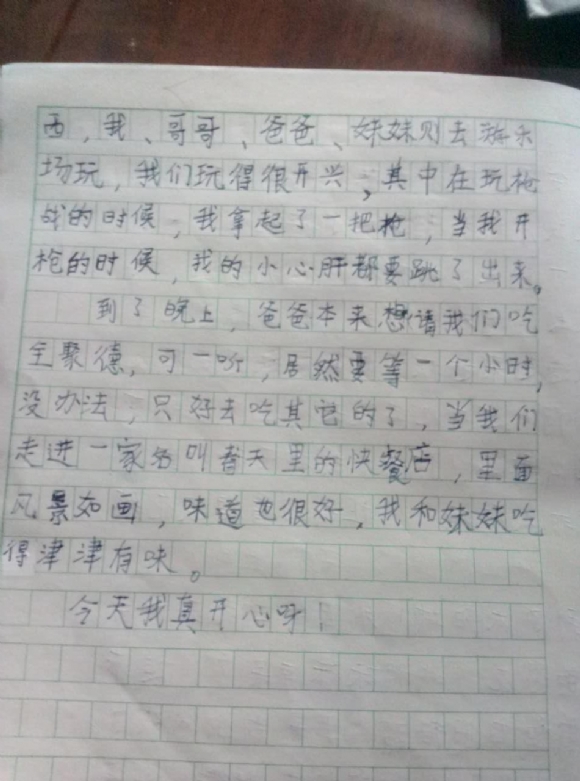 西，我、哥哥、爸爸、妹妹则去游乐
场玩，我们玩得很开兴，其中在玩枪
战的时候，我拿起了一把枪，当我开
枪的时候，我的小心肝都要跳了出来。
到了晚上，爸爸本来想请我们吃
全聚德，可一听，居然要等一个小时，
没办法，只好去吃其它的了，当我们
走进一家名叫春天里的快餐店，里面
风景如画，味道也很好，我和妹妹吃
得津津有味。
今天我真开心呀！